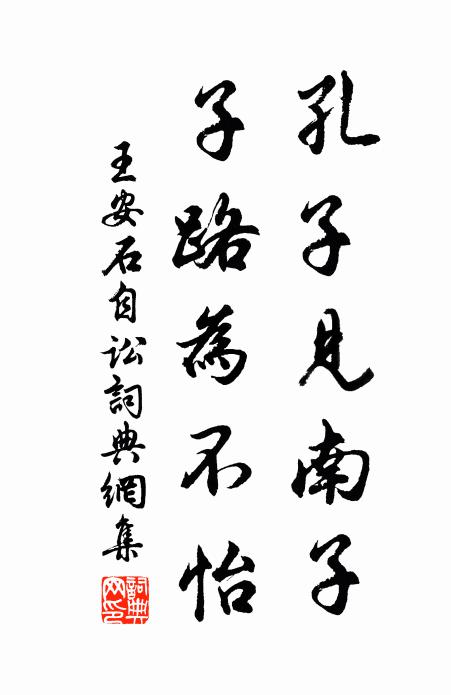 孔子見南子
子路為不怡
王安石自訟詞典網集
詞典網印